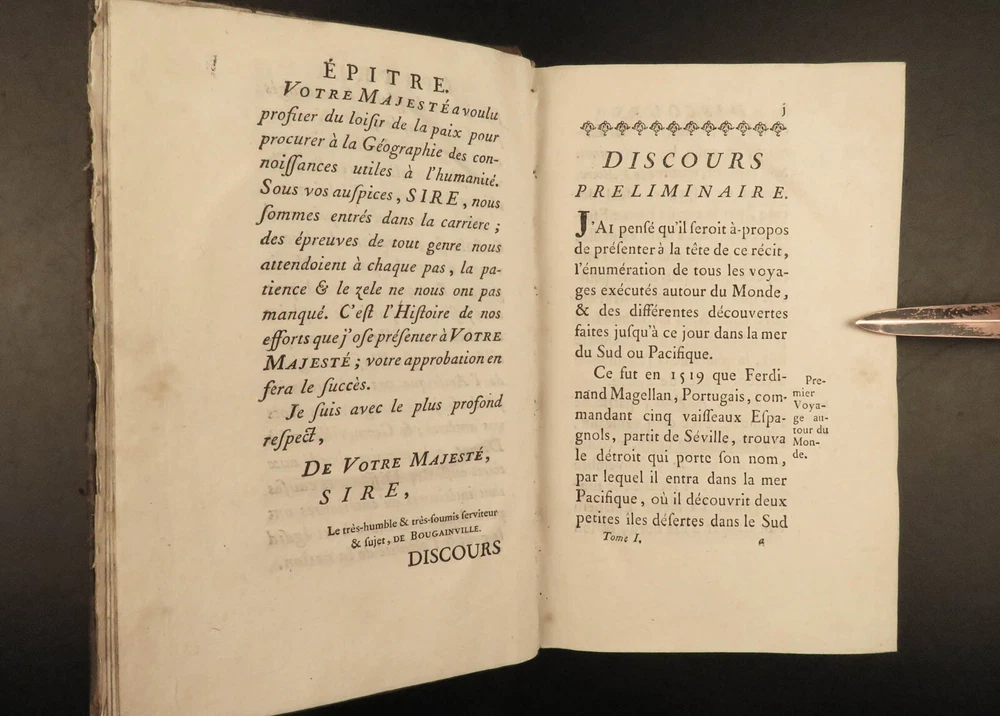 ÉPITRE.
VOTRE MAJESTÉ a voulu
profiter du loiſir de la paix pour
procurer à la Géographie des con-
noiſſances utiles à l'humanité.
Sous vos auſpices, SIRE, nous
ſommes entrés dans la carriere;
des épreuves de tout genre nous
attendoient à chaque pas, la pa-
tience & le zele ne nous ont pas
manqué. C'eſt l'Hiſtoire de nos
efforts que j'oſe préſenter à VOTRE
MAJESTÉ; votre approbation en
fera le ſuccès.
Je ſuis avec le plus profond
reſpect,
DE VOTRE MAJESTÉ,
SIRE,
Le très-humble & très-ſoumis ſerviteur
& ſujet, DE BOUGAINVILLE.
DISCOURS
j
DISCOURS
PRELIMINAIRE.
J'AI penſé qu'il ſeroit à-propos
de préſenter à la tête de ce récit,
l'énumération de tous les voya-
ges exécutés autour du Monde,
& des différentes découvertes
faites juſqu'à ce jour dans la mer
du Sud ou Pacifique.
Ce fut en 1519 que Ferdi-
nand Magellan, Portugais, com-
mandant cinq vaiſſeaux Eſpa-
gnols, partit de Séville, trouva
le détroit qui porte ſon nom,
par lequel il entra dans la mer
Pacifique, où il découvrit deux
petites îles déſertes dans le Sud
Pre-
mier
Voya-
ge au-
tour du
Mon-
de.
Tome I. a